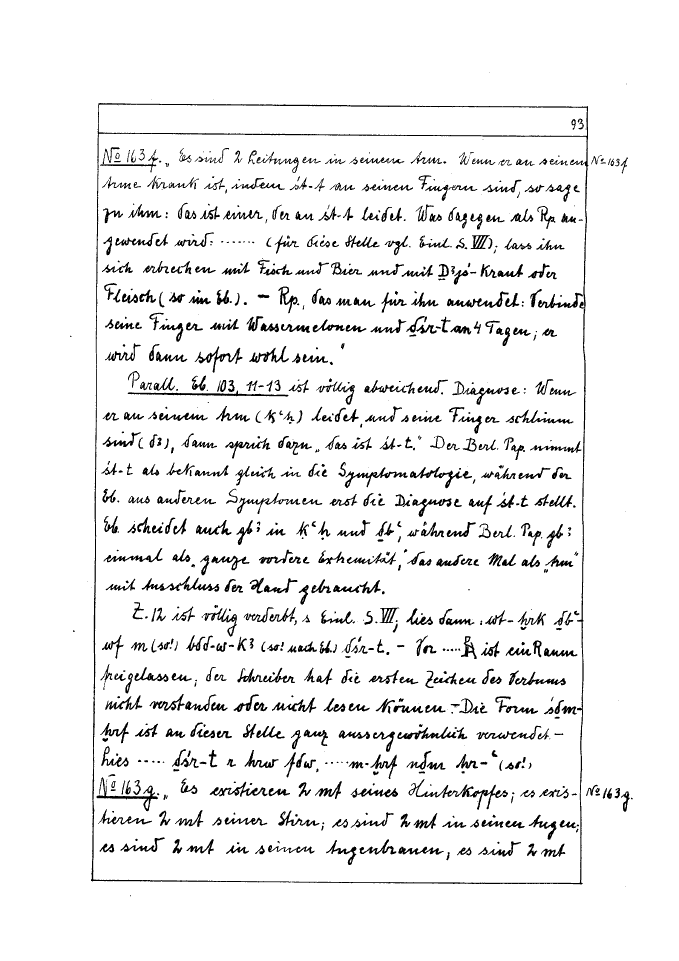 93
No 163 f. „Es sind 2 Leitungen in seinem Arm. Wenn er an seinem No 163 f
Arme krank ist, indem śt-t an seinen Fingern sind, so sage
zu ihm: das ist einer, der an śt-t leidet. Was dagegen als Rp an-
gewendet wird: ······ (für diese Stelle vgl. Einl. S. VII); lass ihn
sich erbrechen mit Fisch und Bier und mit Ḏꜣjś-Kraut oder
Fleisch (so im Eb.). – Rp., das man für ihn anwendet: Verbinde
seine Finger mit Wassermelonen und dśr-t an 4 Tagen; er
wird dann sofort wohl sein."
Parall. Eb. 103, 11-13 ist völlig abweichend. Diagnose: Wenn
er an seinem Arm (kꜥḥ) leidet, und seine Finger schlimm
sind (dꜣ), dann sprich dazu „das ist śt-t." Der Berl. Pap. nimmt
śt-t als bekannt gleich in die Symptomatologie, während der
Eb. aus anderen Symptomen erst die Diagnose auf śt-t stellt.
Eb. scheidet auch gbꜣ in kꜥḥ und ḏbꜥ, während Berl. Pap. gbꜣ
einmal als „ganze vordere Extremität," das andere Mal als „Arm"
mit Ausschluss der Hand gebraucht.
Z. 12 ist völlig verderbt, s. Einl. S. VII; lies dann: wt-ḫrk ḏbꜥ-
wf m (so!) bdd-w-kꜣ (so! nach Eb.) dśr-t. – Vor ····· ist ein Raum
freigelassen; der Schreiber hat die ersten Zeichen des Verbums
nicht verstanden oder nicht lesen können. – Die Form śḏm-
ḫrf ist an dieser Stelle ganz aussergewöhnlich verwendet. –
Lies ····· dśr-t r hrw fdw, ····· m-ḫrf nḏm ḥr-ꜥ (so!)
No 163 g. „Es existieren 2 mt seines Hinterkopfes; es exis- No 163 g.
tieren 2 mt seiner Stirn; es sind 2 mt in seinen Augen;
es sind 2 mt in seinen Augenbrauen; es sind 2 mt